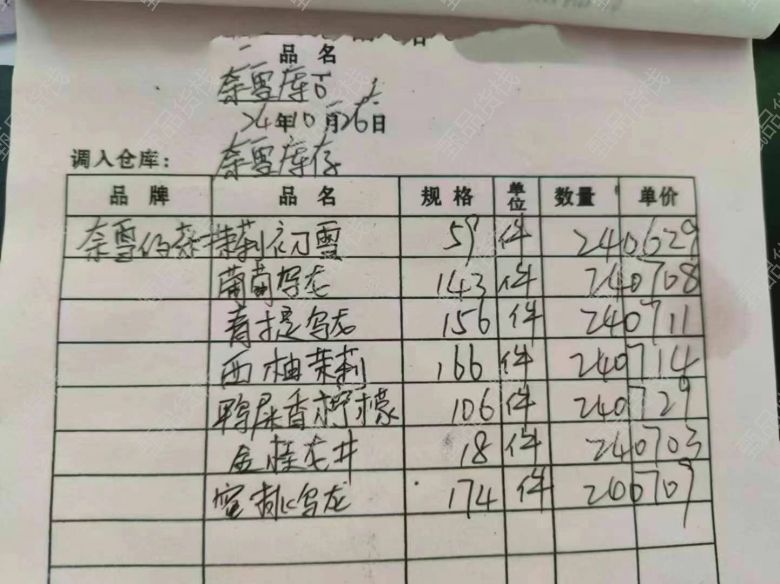 品 名
奈雪库存
24年10月26日
调入仓库: 奈雪库存
品 牌 品 名 规 格 单位 数量 单价
奈雪的茶 茉莉初雪 59 件 240629
葡萄乌龙 143 件 240708
青提乌龙 156 件 240711
西柚茉莉 166 件 240714
鸭屎香柠檬 106 件 240729
金桂龙井 18 件 240703
蜜桃乌龙 174 件 240709
臻品货栈